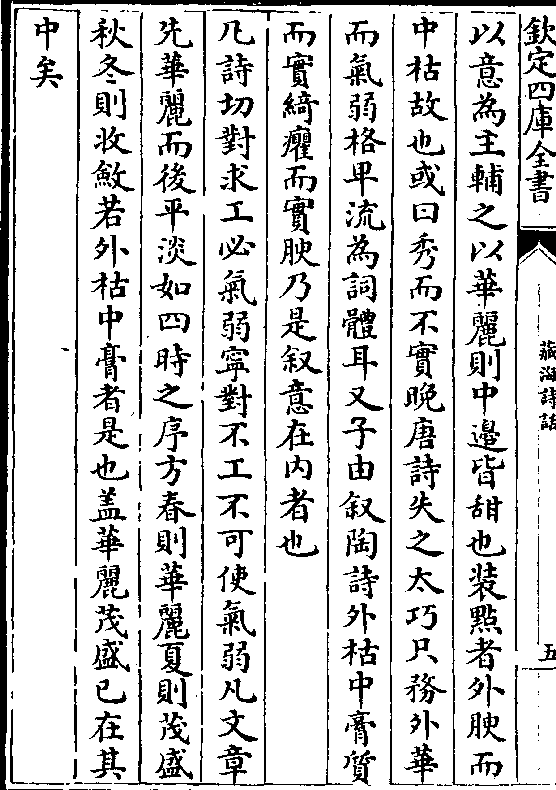 欽定四庫全書
藏海詩話
五
以意為主輔之以華麗則中邉皆甜也装㸃者外腴而
中枯故也或曰秀而不實晚唐詩失之太巧只務外華
而氣弱格卑流為詞體耳又子由叙陶詩外枯中膏質
而實綺癯而實腴乃是叙意在内者也
凡詩切對求工必氣弱寧對不工不可使氣弱凡文章
先華麗而後平淡如四時之序方春則華麗夏則茂盛
秋冬則收斂若外枯中膏者是也盖華麗茂盛已在其
中矣